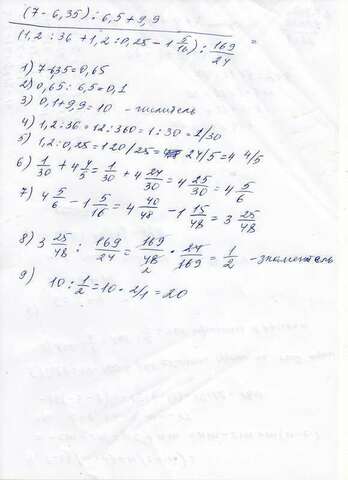 (7 - 6,35) : 6,5 + 9,9
(1,2 : 36 + 1,2 : 0,25 - 1 5/16) : 169/24 =
1) 7-6,35=0,65
2) 0,65 : 6,5=0,1
3) 0,1+9,9=10 - числитель
4) 1,2:36=12:360=1:30=1/30
5) 1,2:0,25=120/25= 24/5=4 4/5
6) 1/30 + 4 4/5 = 1/30 + 4 24/30 = 4 25/30 = 4 5/6
7) 4 5/6 - 1 5/16 = 4 40/48 - 1 15/48 = 3 25/48
8) 3 25/48 : 169/24 = 169/48 • 24/169 = 1/2 - знаменатель
2
9) 10 : 1/2 = 10 • 2/1 = 20